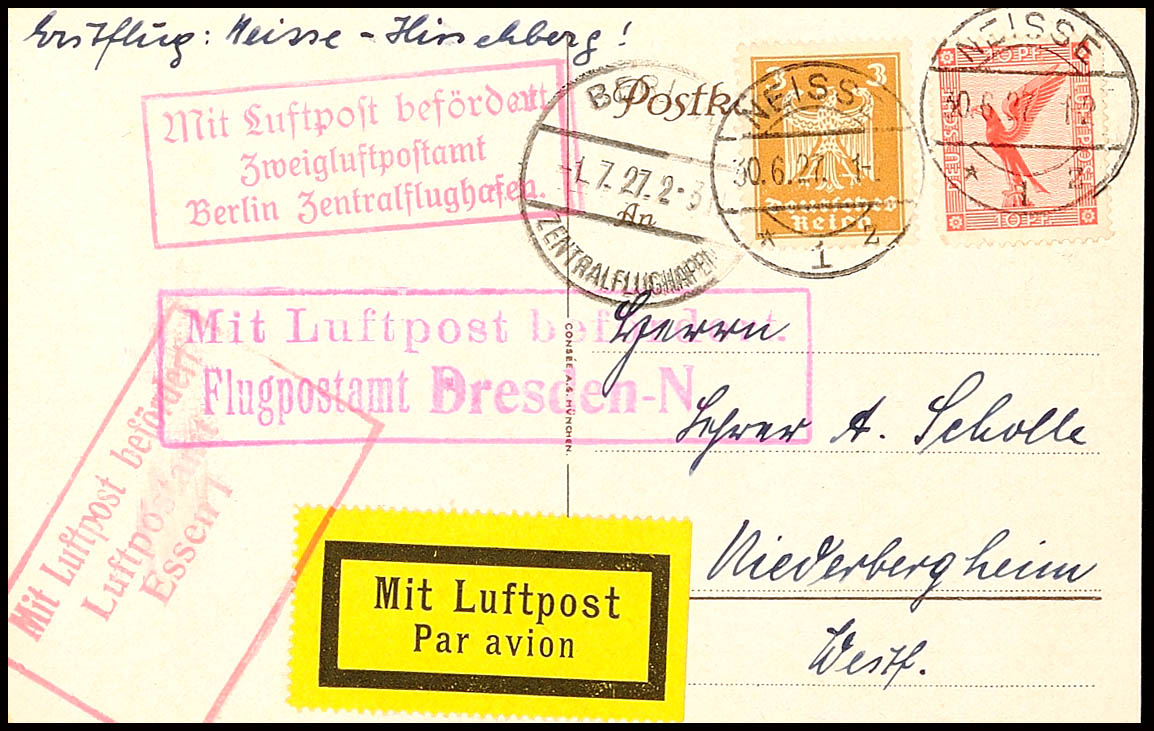 Erstflug: Neisse - Hirschberg!
Mit Luftpost befördert
Zweigluftpostamt
Berlin Zentralflughafen.
Postka
-1.7.27.2-3
An
ZENTRALFLUGHAFEN
3 3
Deutsches
Reich
NEISS
30.6.27. 1-
* 1 z
NEISSE
30.6.27. 12
* 1 z
10 PF
DEUTSCHE
LUFTPOST
10 PF
Mit Luftpost befördert.
Flugpostamt Dresden-N.
Mit Luftpost befördert
Luftpostamt
Essen 1
CONSÉE A.G. MÜNCHEN.
Herrn
Lehrer A. Scholle
Niederbergheim
Westf.
Mit Luftpost
Par avion